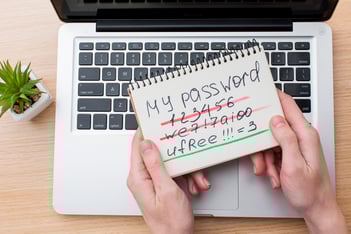 My password
123456
we717a100
ufree!!!=3